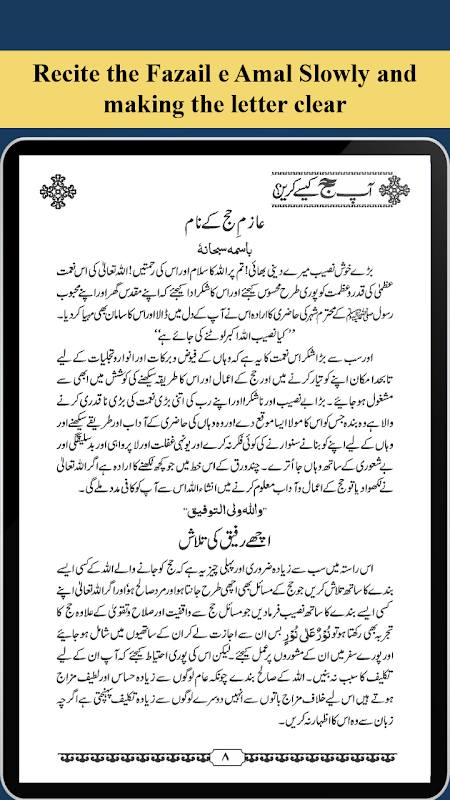 Recite the Fazail e Amal Slowly and
making the letter clear
آپ حج کیسے کریں؟
عازمِ حج کے نام
باسمہ سبحانہٗ
بڑے خوش نصیب میرے دینی بھائی! تم پر اللہ کا سلام اور اس کی رحمتیں! اللہ تعالیٰ کی اس نعمت
عظمیٰ کی قدر و عظمت کو پوری طرح محسوس کیجئے اور اس کا شکر ادا کیجئے کہ اپنے مقدس گھر اور اپنے محبوب
رسول ﷺ کے محترم شہر کی حاضری کا ارادہ اس نے آپ کے دل میں ڈالا اور اس کا سامان بھی مہیا کر دیا۔
’’کیا نصیب اللہ اکبر لوٹنے کی جائے ہے‘‘
اور سب سے بڑا شکر اس نعمت کا یہ ہے کہ وہاں کے فیوض و برکات اور انوار و تجلیات کے لیے
تا بحد امکان اپنے کو تیار کرنے میں اور حج کے اعمال اور اس کا طریقہ سیکھنے کی کوشش میں ابھی سے
مشغول ہو جائیے۔ بڑا بے نصیب اور ناشکرا اور اپنے رب کی اتنی بڑی نعمت کی بڑی ناقدری کرنے
والا ہے وہ بندہ جس کو اس کا مولا ایسا موقع دے اور وہ وہاں کی حاضری کے آداب اور طریقے سیکھنے اور
وہاں کے لیے اپنے کو بنانے سنوارنے کی کوئی فکر نہ کرے اور یونہی غفلت اور لا پرواہی اور بدسلیقگی اور
بے شعوری کے ساتھ وہاں جا اُترے۔ چند ورق کے اس خط میں جو کچھ لکھنے کا ارادہ ہے اگر اللہ تعالیٰ
نے لکھوا دیا تو حج کے اعمال و آداب معلوم کرنے میں انشاء اللہ اس سے آپ کو کافی مدد ملے گی۔
’’واللہ ولی التوفیق‘‘
اچھے رفیق کی تلاش
اس راستہ میں سب سے زیادہ ضروری اور پہلی چیز یہ ہے کہ حج کو جانے والے اللہ کے کسی ایسے
بندے کا ساتھ تلاش کریں جو حج کے مسائل بھی اچھی طرح جانتا ہو اور مرد صالح ہو، اور اگر اللہ تعالیٰ اپنے
کسی ایسے بندے کا ساتھ نصیب فرما دیں جو مسائل حج سے واقفیت اور صلاح و تقویٰ کے علاوہ حج کا
تجربہ بھی رکھتا ہو تو نُوْرٌ عَلٰی نُوْرٍ بس ان سے اجازت لے کر ان کے ساتھیوں میں شامل ہو جائیے
اور پورے سفر میں ان کے مشوروں پر عمل کیجئے۔ لیکن اس کی پوری احتیاط کیجئے کہ آپ ان کے لیے
تکلیف کا سبب نہ بنیں۔ اللہ کے صالح بندے چونکہ عام لوگوں سے زیادہ حساس اور لطیف مزاج
ہوتے ہیں اس لیے خلاف مزاج باتوں سے اُنہیں دوسرے لوگوں سے زیادہ تکلیف پہنچتی ہے اگرچہ
زبان سے وہ اس کا اظہار نہ کریں۔
۸